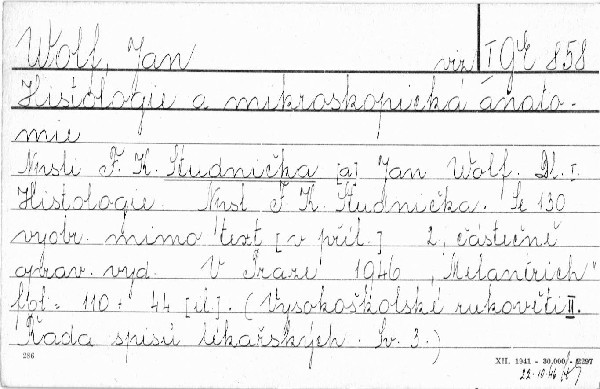 Wolf, Jan viz I GE 858
Histologie a mikroskopická anato-
mie
Nrsli F. K. Studnička [a] Jan Wolf. Dl. I.
Histologie. Nrsl F. K. Studnička. Se 130
vyobr. mimo text [v příl.] 2. částečně
oprav. vyd. V Praze 1946 „Melantrich"
110 + 44 [il.]. (Vysokoškolské rukověti II.
Řada spisů lékařských. Sv. 3.)
286 XII. 1941 - 30,000